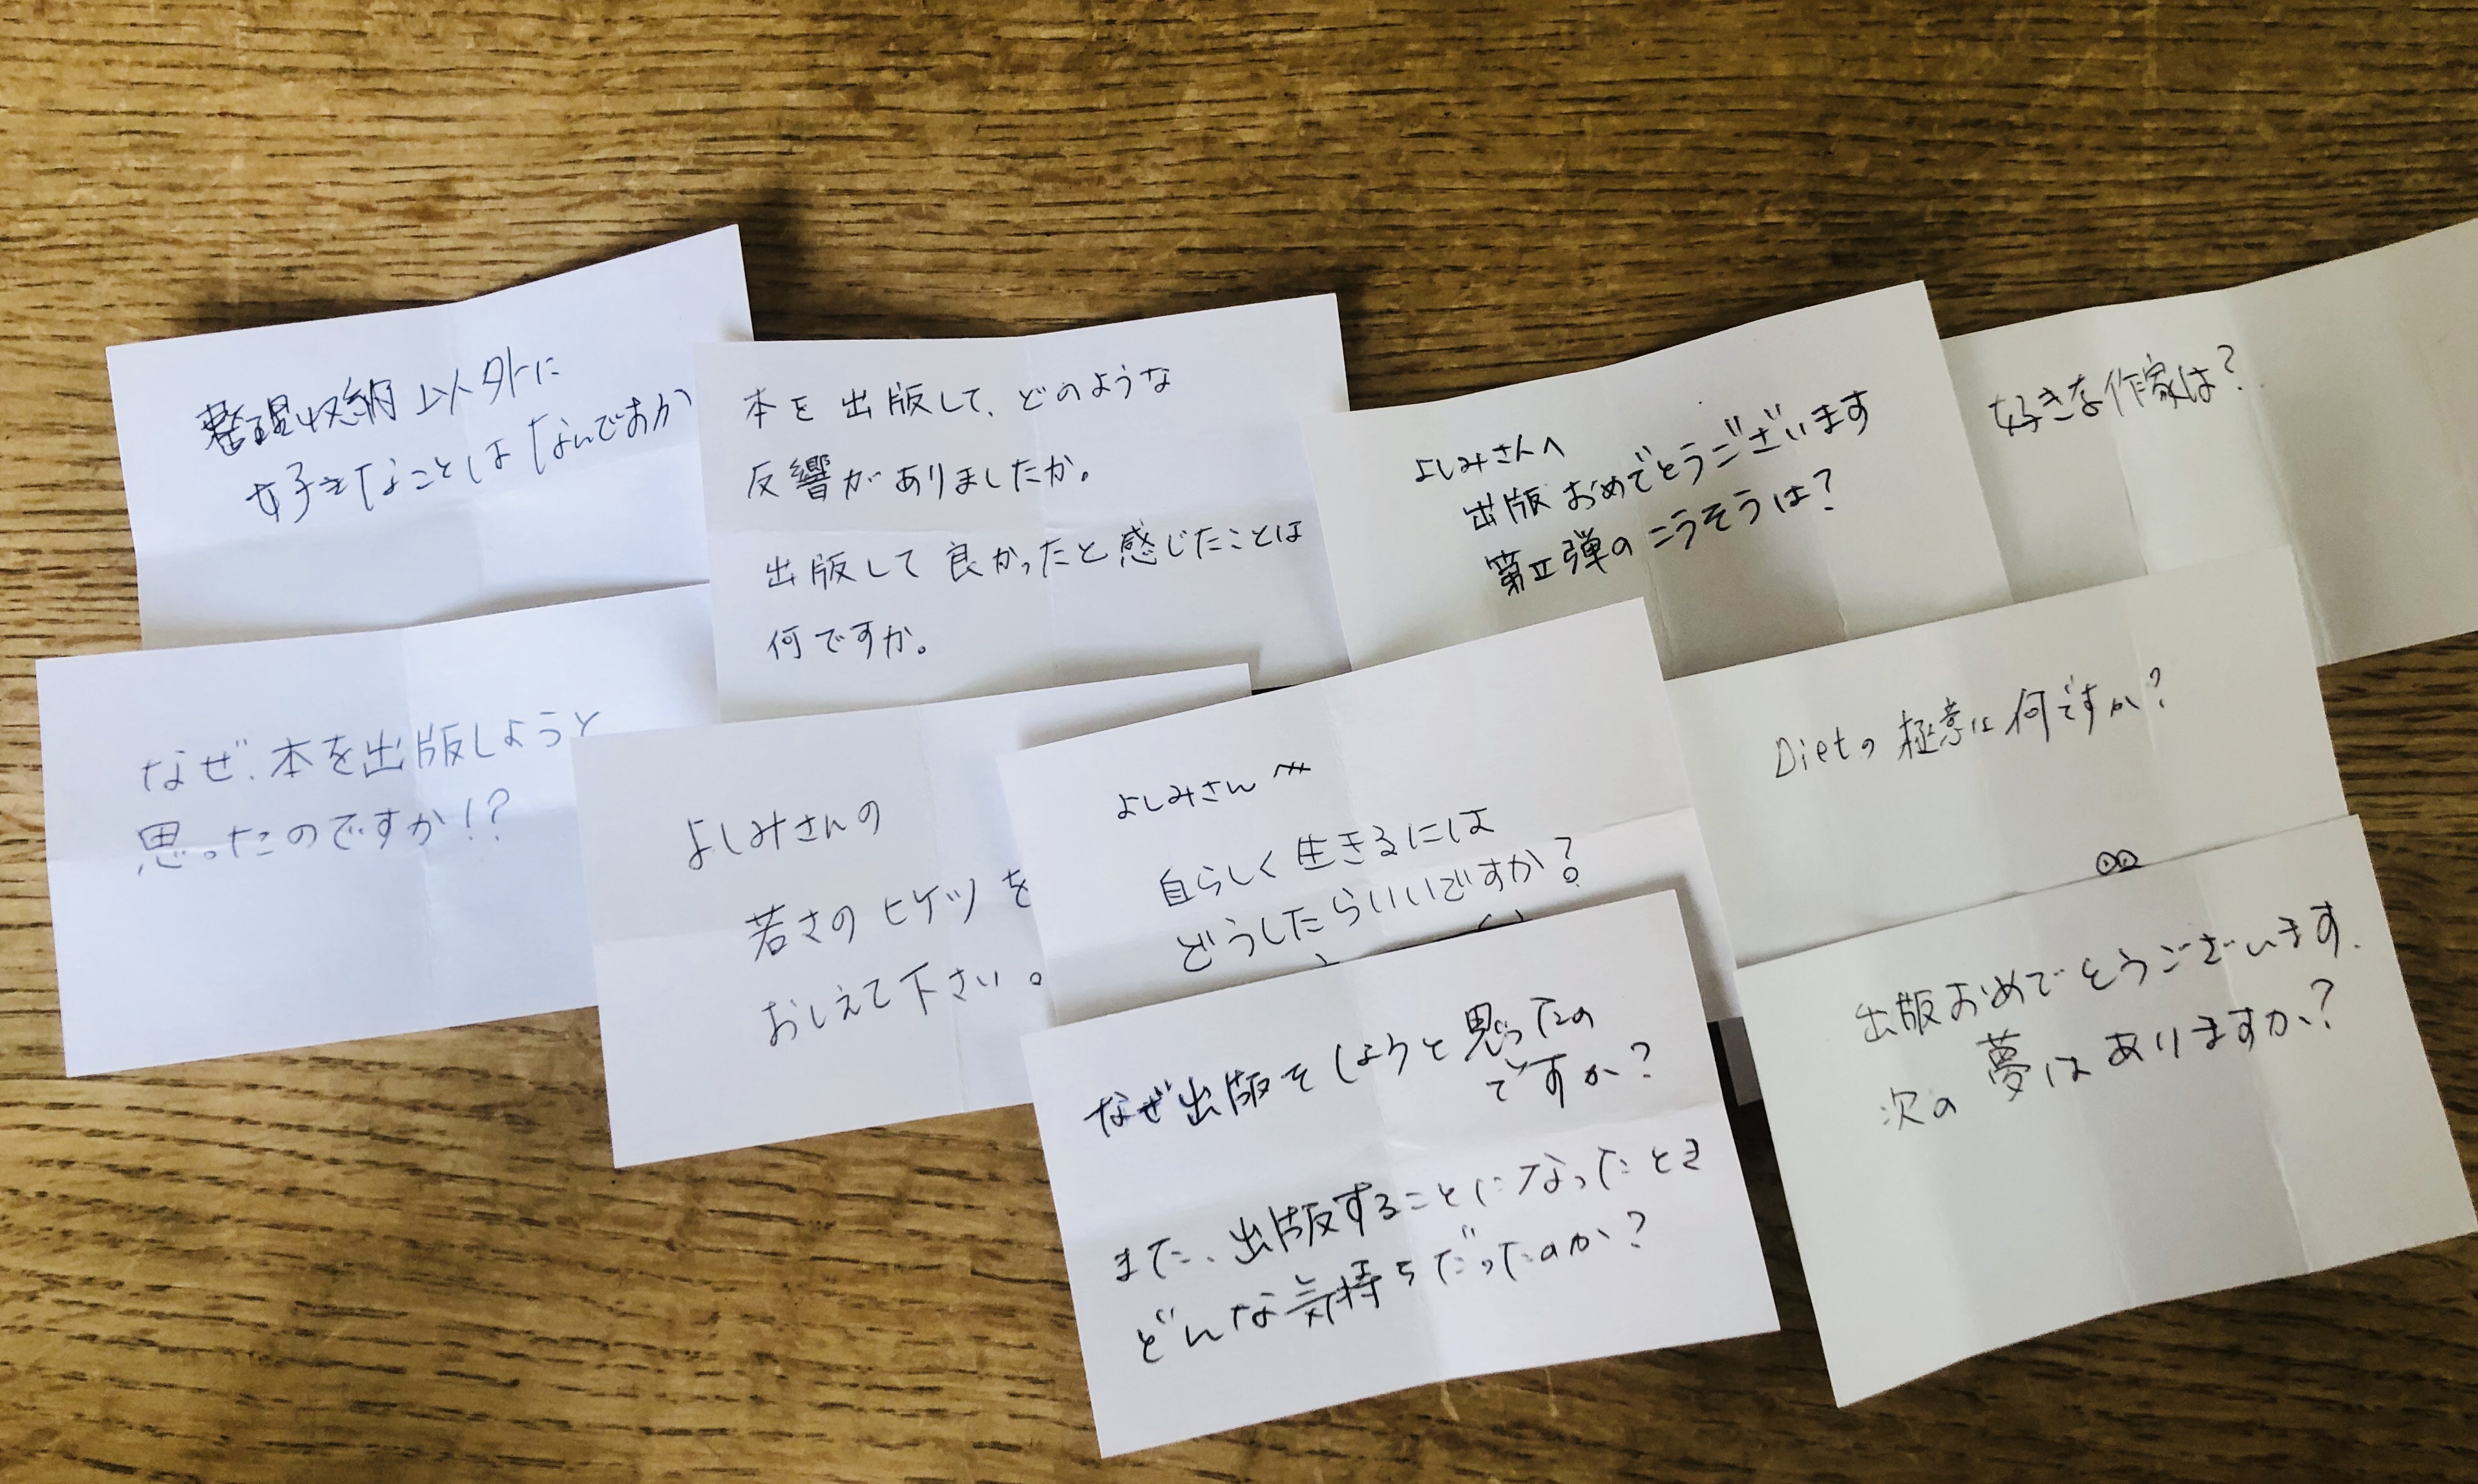 整理収納以外に
好きなことはなんですか
本を出版して、どのような
反響がありましたか。
出版して良かったと感じたことは
何ですか。
よしみさんへ
出版おめでとうございます
第二弾のこうそうは?
好きな作家は?
なぜ、本を出版しようと
思ったのですか!?
よしみさんの
若さのヒケツを
おしえて下さい。
よしみさんへ
自らしく生きるには
どうしたらいいですか?
Dietの極意は何ですか?
なぜ出版をしようと思ったの
ですか?
また、出版することになったとき
どんな気持ちだったのか?
出版おめでとうございます.
次の夢はありますか?